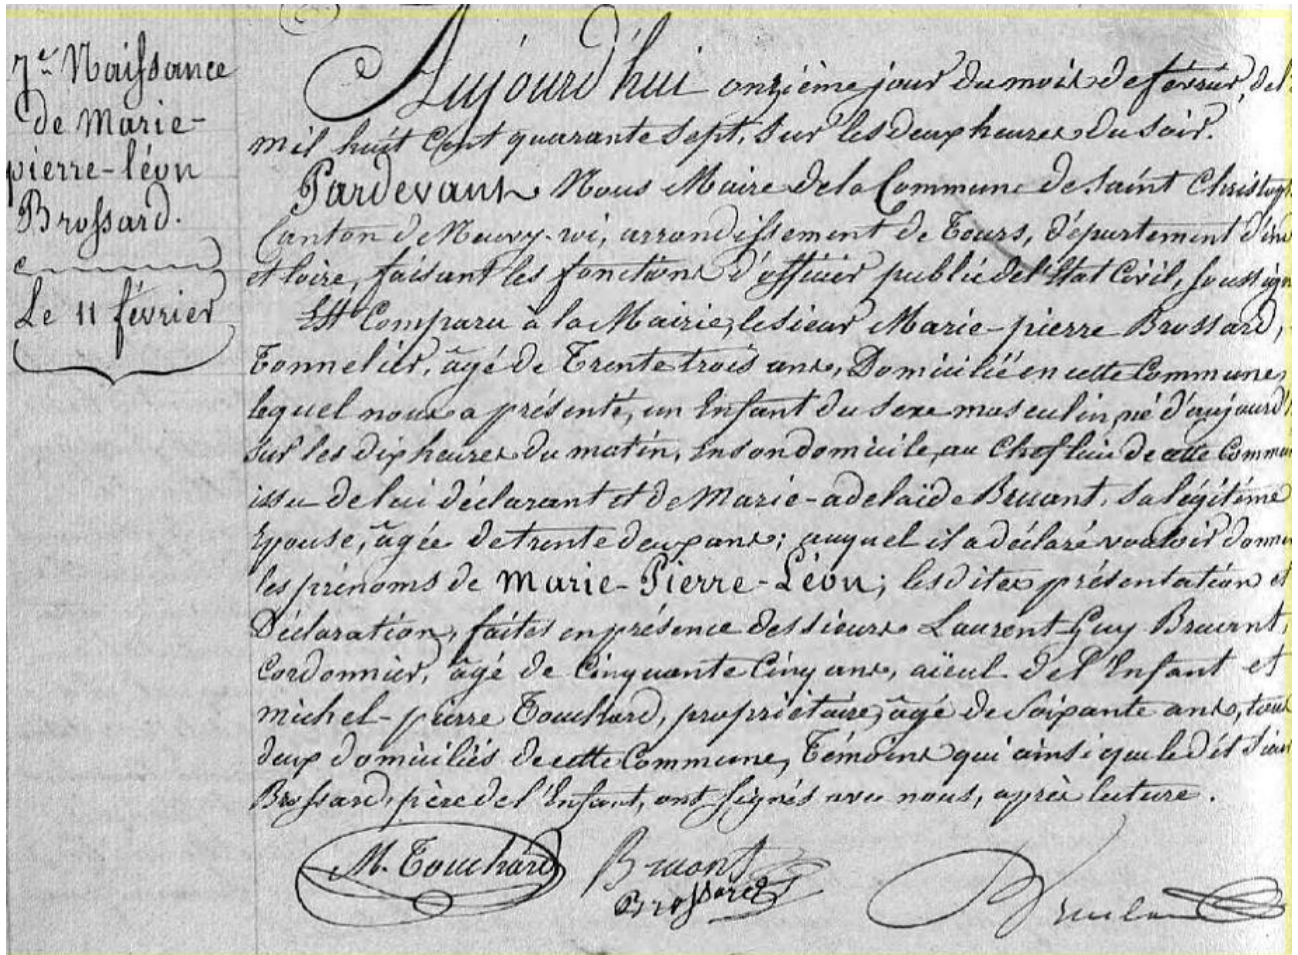 7.e Naissance
de Marie-
pierre-léon
Brossard.
Le 11 février
Aujourd'hui onzième jour du mois de février, de l'
mil huit Cent quarante sept, sur les deux heures du soir.
Pardevant Nous Maire de la Commune de saint Christop
Canton de Neuvy-roi, arrondissement de Tours, département d'ind
et loire, faisant les fonctions d'officier public de l'État Civil, soussign
Est Comparu à la Mairie, le sieur Marie-pierre Brossard,
Tonnelier, âgé de Trente trois ans, Domicilié en cette Commune,
lequel nous a présenté, un Enfant du sexe masculin, né d'aujourd'h
sur les dix heures du matin, en son domicile, au Chef lieu de cette Commu
issu de lui déclarant et de Marie-adelaïde Bruant, sa légitime
Epouse, âgée de trente deux ans; auquel il a déclaré vouloir donne
les prénoms de Marie-Pierre-Léon; les dites présentation et
Déclaration, faites en présence des sieurs Laurent-Guy Bruant,
Cordonnier, âgé de Cinquante Cinq ans, aïeul de l'Enfant et
michel-pierre Touchard, propriétaire, âgé de Soixante ans, tous
deux domiciliés de cette Commune, Témoins qui ainsi que le dit sieur
Brossard, père de l'Enfant, ont signés avec nous, après lecture.
M. Touchard Bruant
Brossard